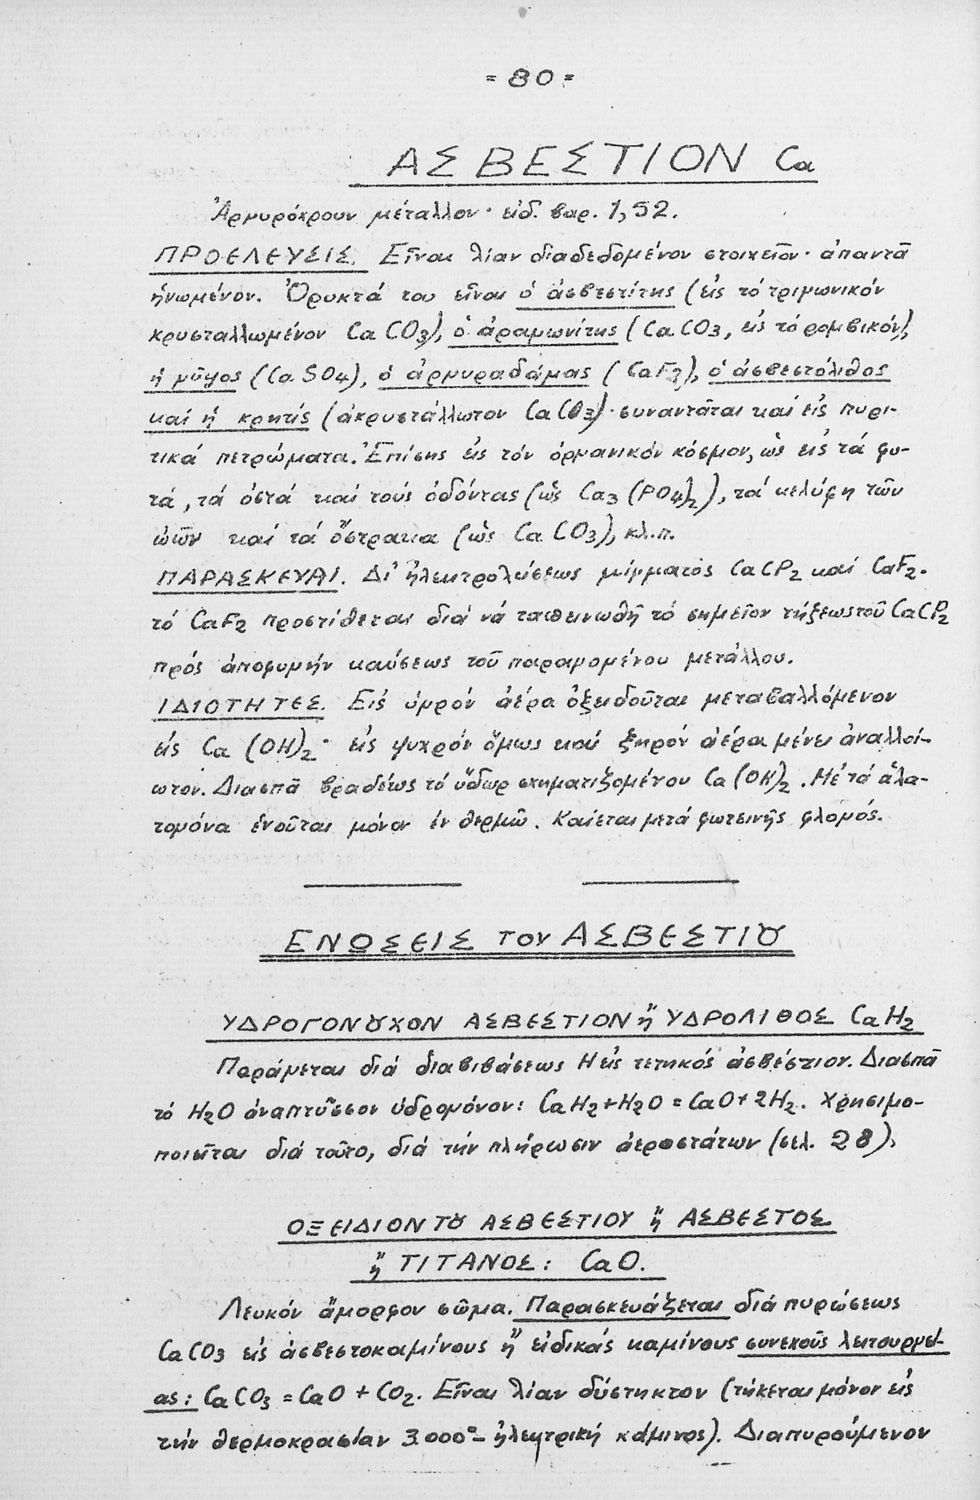 = 80 =
ΑΣΒΕΣΤΙΟΝ Ca
Ἀργυρόχρουν μέταλλον· εἰδ. βαρ. 1,52.
ΠΡΟΕΛΕΥΣΙΣ. Εἶναι λίαν διαδεδομένον στοιχεῖον· ἀπαντᾶ
ἡνωμένον. Ὀρυκτά του εἶναι ὁ ἀσβεστίτης (εἰς τό τριγωνικόν
κρυσταλλωμένον CaCO3), ὁ ἀραγωνίτης (CaCO3, εἰς τό ρομβικόν),
ἡ γῦψος (CaSO4), ὁ ἀργυραδάμας (CaF2), ὁ ἀσβεστόλιθος
καί ἡ κρητίς (ἀκρυστάλλωτον CaCO3)· συναντᾶται καί εἰς πυρι-
τικά πετρώματα. Ἐπίσης εἰς τόν ὀργανικόν κόσμον, ὡς εἰς τά φυ-
τά, τά ὀστά καί τούς ὀδόντας (ὡς Ca3(PO4)2), τά κελύφη τῶν
ὠῶν καί τά ὄστρακα (ὡς CaCO3), κλ.π.
ΠΑΡΑΣΚΕΥΑΙ. Δι' ἠλεκτρολύσεως μίγματος CaCl2 καί CaF2.
τό CaF2 προστίθεται διά νά ταπεινωθῆ τό σημεῖον τήξεως τοῦ CaCl2
πρός ἀποφυγήν καύσεως τοῦ παραγομένου μετάλλου.
ΙΔΙΟΤΗΤΕΣ. Εἰς ὑγρόν ἀέρα ὀξειδοῦται μεταβαλλόμενον
εἰς Ca(OH)2· εἰς ψυχρόν ὅμως καί ξηρόν ἀέρα μένει ἀναλλοί-
ωτον. Διασπᾶ βραδέως τό ὕδωρ σχηματιζομένου Ca(OH)2. Μέ τά ἀλα-
τογόνα ἑνοῦται μόνον ἐν θερμῶ. Καίεται μετά φωτεινῆς φλογός.
ΕΝΩΣΕΙΣ ΤΟΥ ΑΣΒΕΣΤΙȢ
ΥΔΡΟΓΟΝȢΧΟΝ ΑΣΒΕΣΤΙΟΝ ἤ ΥΔΡΟΛΙΘΟΣ CaH2
Παράγεται διά διαβιβάσεως H εἰς τετηκός ἀσβέστιον. Διασπᾶ
τό H2O ἀναπτῦσσον ὑδρογόνον: CaH2+H2O = CaO+2H2. Χρησιμο-
ποιεῖται διά τοῦτο, διά τήν πλήρωσιν ἀεροστάτων (σελ. 28).
ΟΞΕΙΔΙΟΝ ΤȢ ΑΣΒΕΣΤΙΟΥ ἤ ΑΣΒΕΣΤΟΣ
ἤ ΤΙΤΑΝΟΣ: CaO.
Λευκόν ἄμορφον σῶμα. Παρασκευάζεται διά πυρώσεως
CaCO3 εἰς ἀσβεστοκαμίνους ἤ εἰδικάς καμίνους συνεχοῦς λειτουργεί-
ας: CaCO3 = CaO + CO2. Εἶναι λίαν δύστηκτον (τήκεται μόνον εἰς
τήν θερμοκρασίαν 3.000° – ἠλεκτρική κάμινος). Διαπυρούμενον